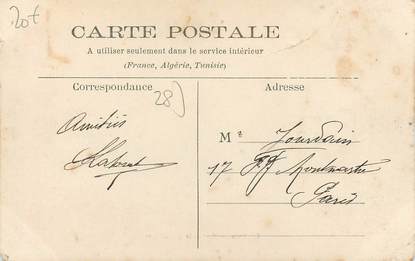 20f
CARTE POSTALE
A utiliser seulement dans le service intérieur
(France, Algérie, Tunisie)
Correspondance
Adresse
28)
Amitiés
M. Jourdain
17 Fg Montmartre
Paris